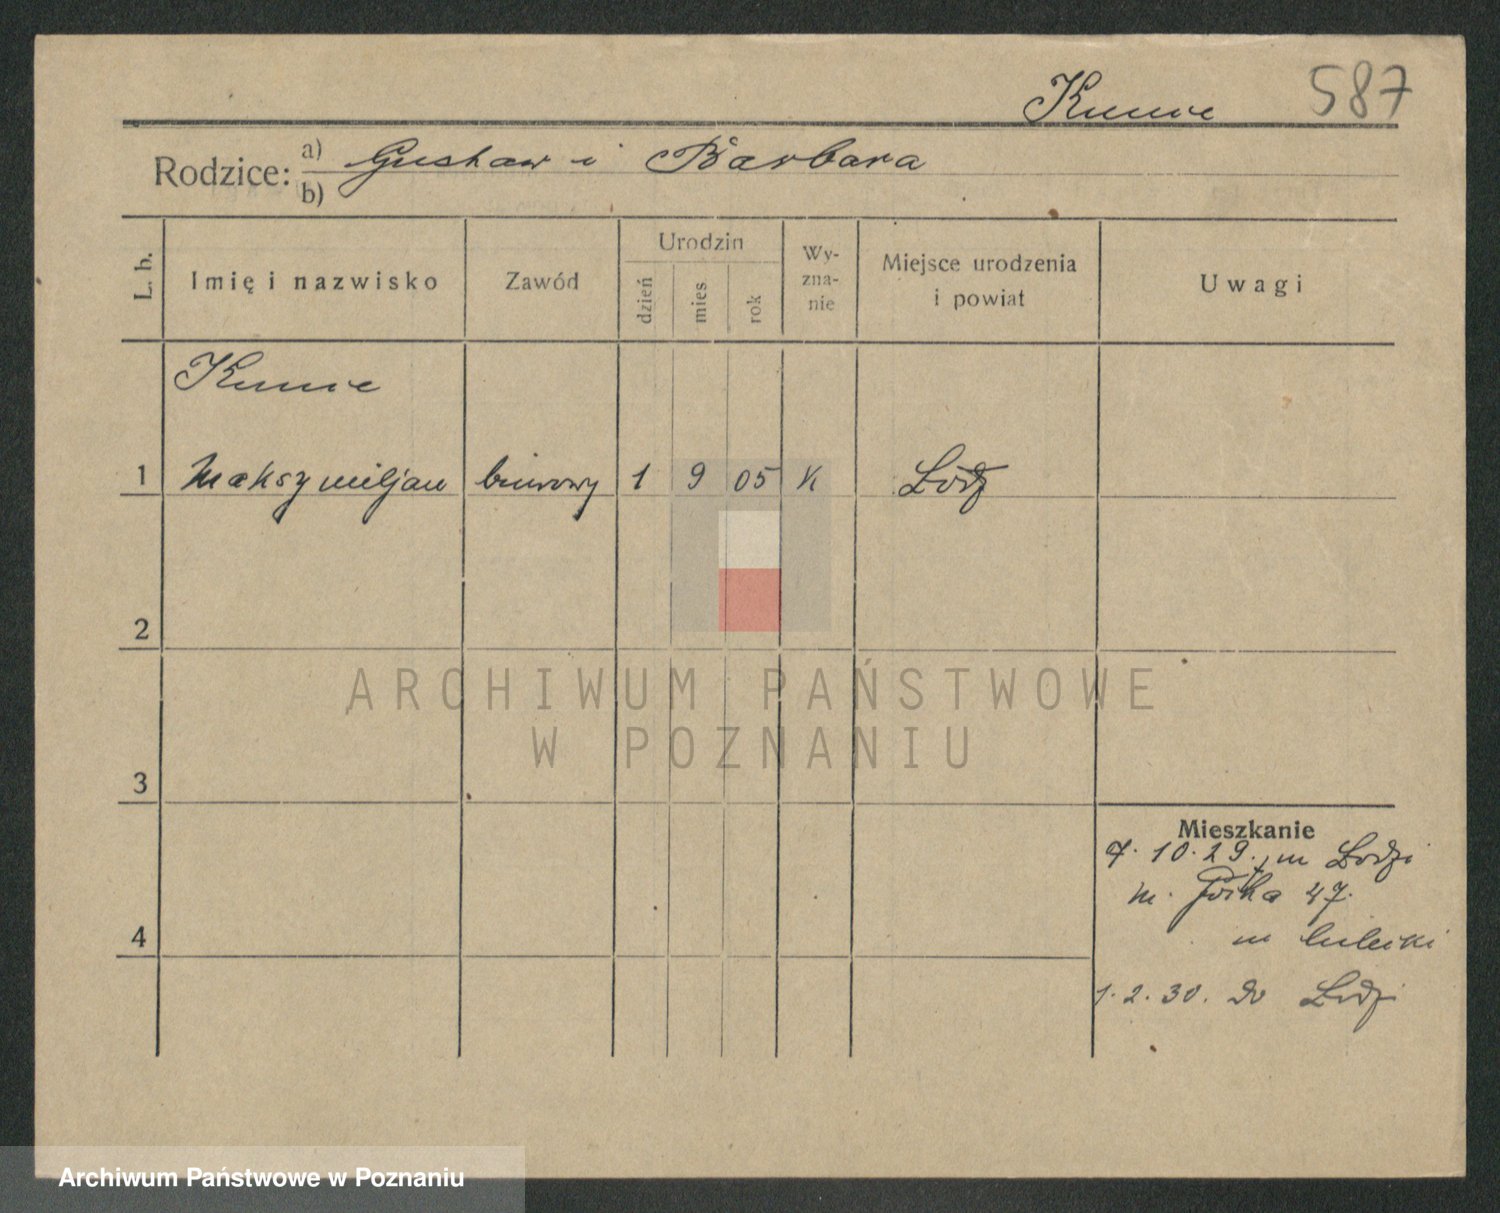 Kunce 587
Rodzice: a) Gustaw i Barbara
b)
L. b.
Imię i nazwisko
Zawód
Urodzin
dzień
mies
rok
Wy-
zna-
nie
Miejsce urodzenia
i powiat
Uwagi
Kunce
1 Maksymiljan biurowy 1 9 05 k Łódź
2
ARCHIWUM PAŃSTWOWE
W POZNANIU
3
Mieszkanie
7. 10. 29. m Łodzi
m. 47.
4 m
1. 2. 30. do Łodzi
Archiwum Państwowe w Poznaniu